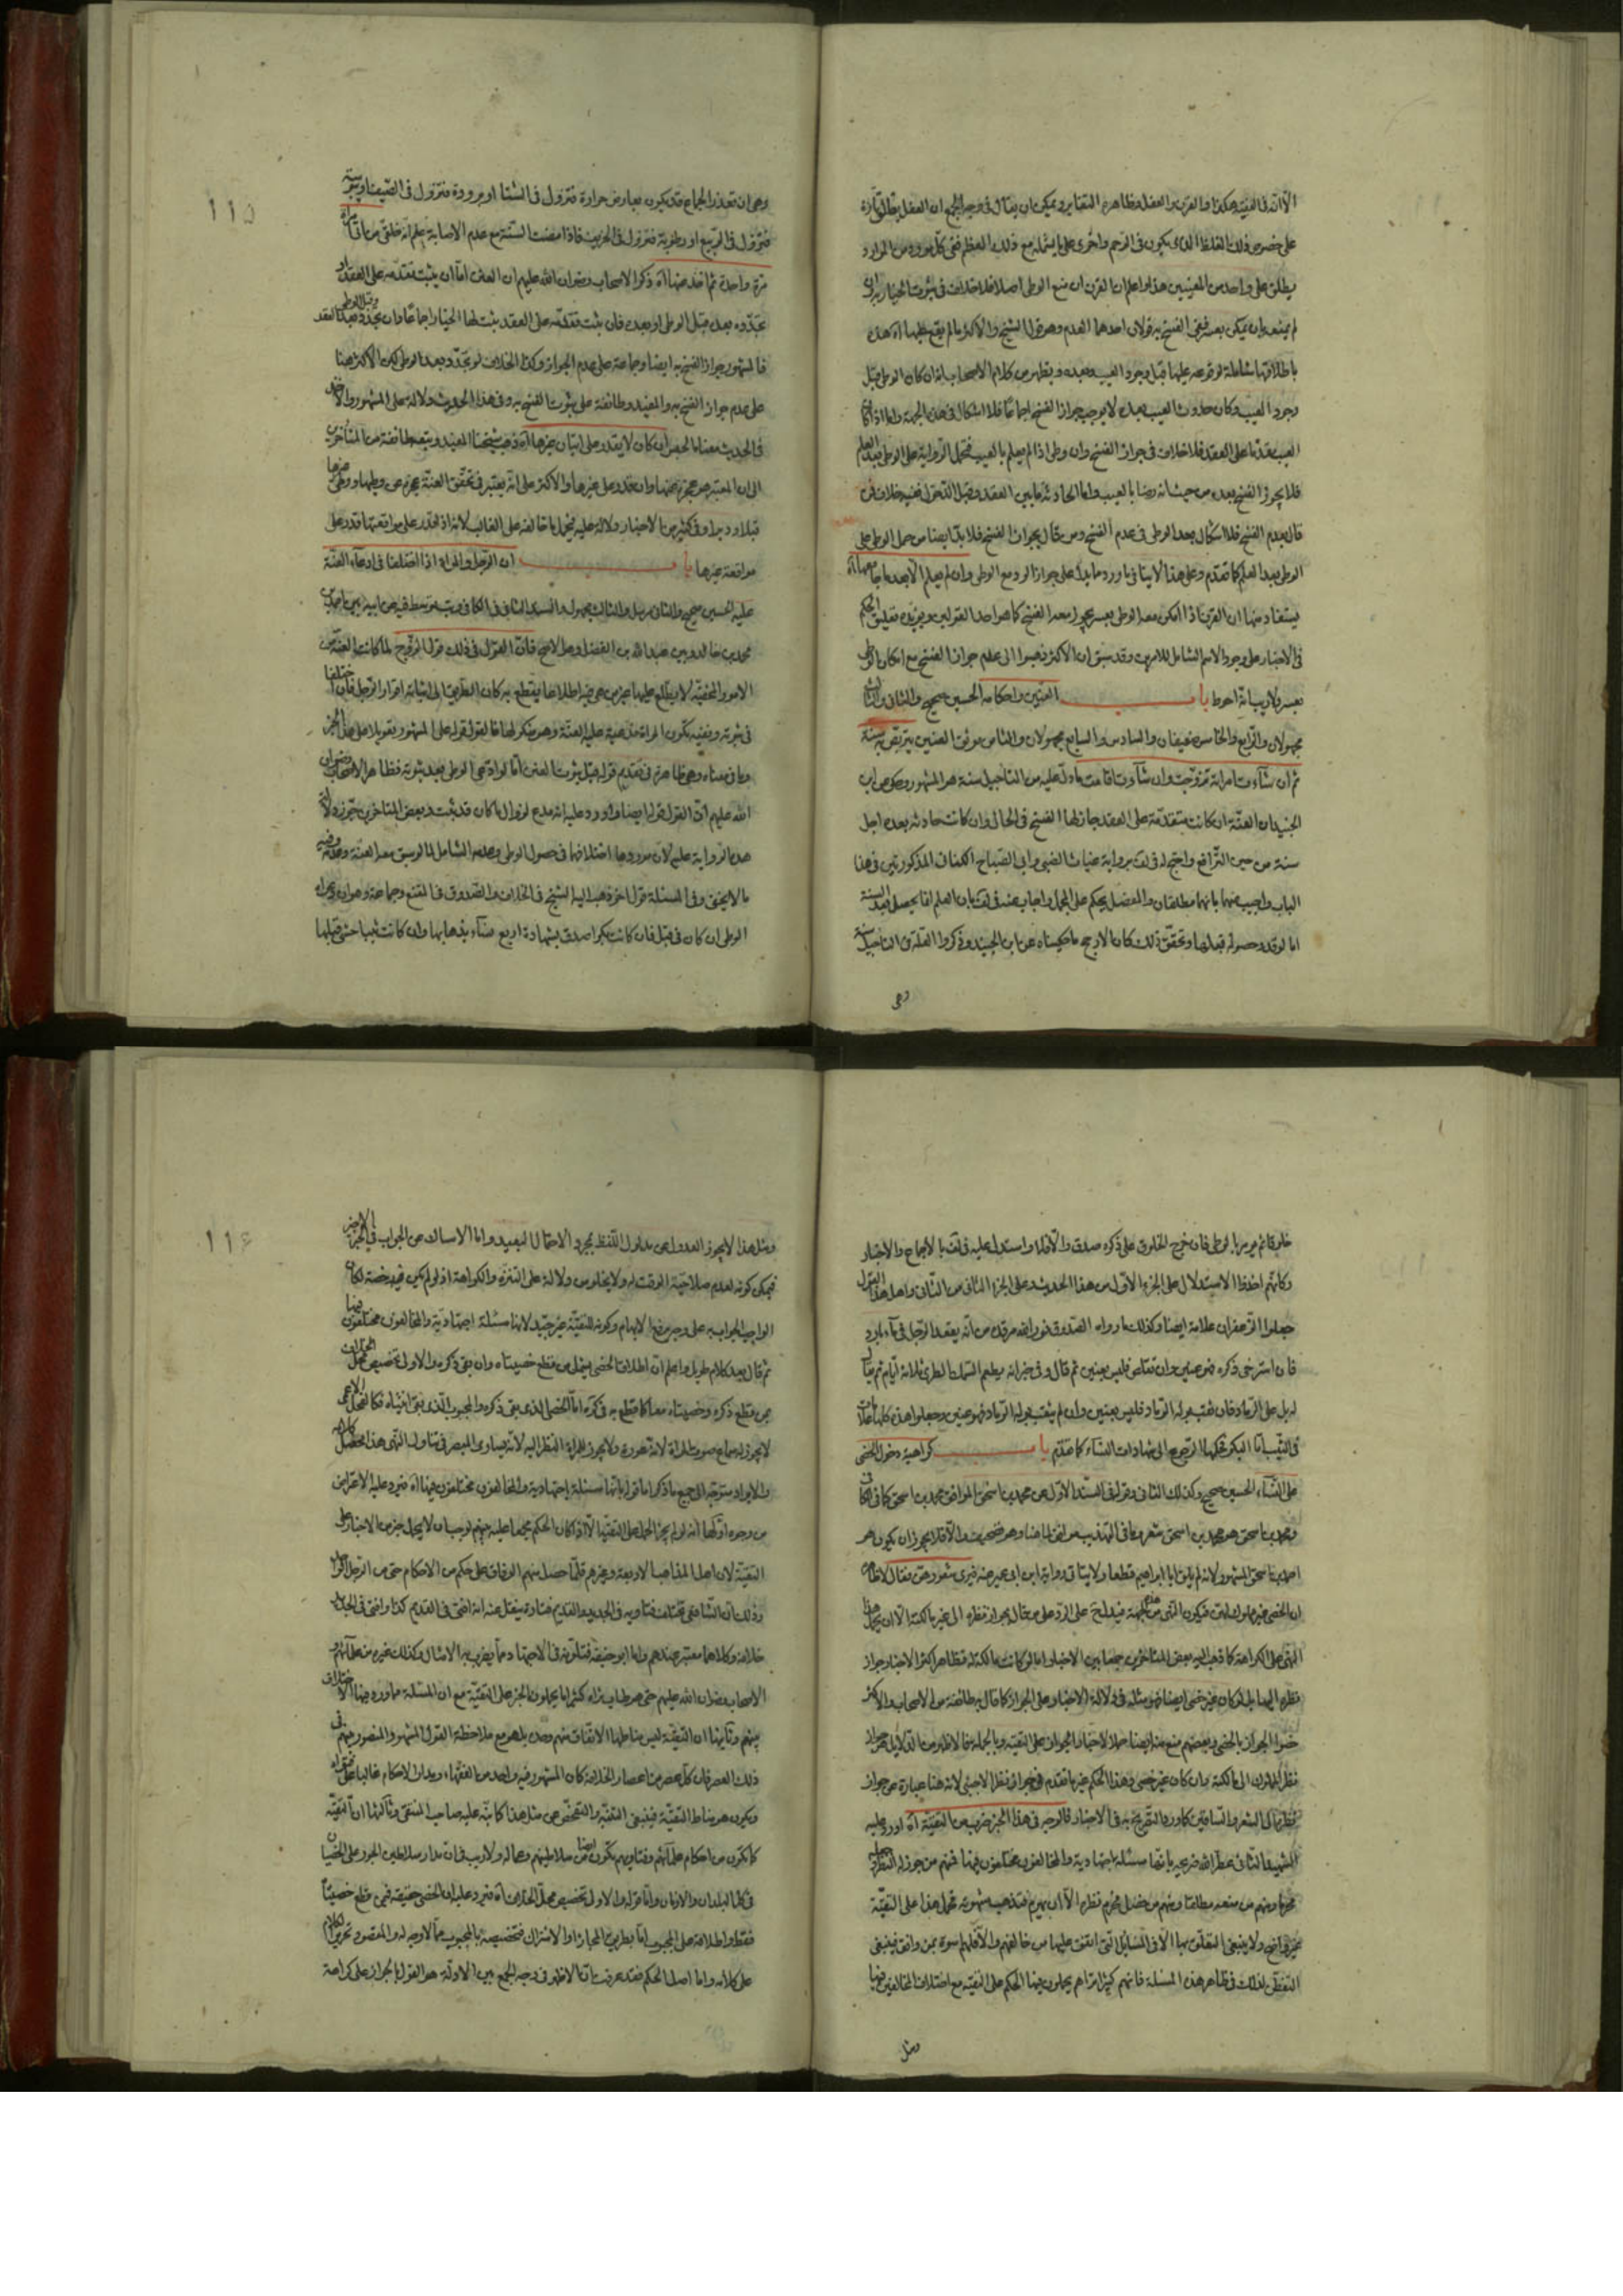 الا انه فى الفقيه هكذا والقرن والعفل وظاهره التغاير ويمكن ان يقال فى وجه الجمع ان العفل يطلق تارة
على خصوص ذلك الغلظ الذى يكون فى الرحم واخرى على ما يشمله مع ذلك العظم ففى كل مورد من الموارد
يطلق على واحد من المعنيين هذا واعلم ان القرن ان منع الوطى اصلا فلا خلاف فى ثبوت الخيار به وان
لم يمنعه بان يمكن بعسر ففى الفسخ به قولان احدهما العدم وهو قول الشيخ والاكثر ما لم يقع عليها اه هذه
باطلاقها شاملة لوقوعه عليها قبل وجود العيب وبعده ويظهر من كلام الاصحاب انه ان كان الوطى قبل
وجود العيب وكان حدوث العيب بعده لا يوجب جواز الفسخ اجماعا فلا اشكال فى هذه الجهة واما اذا كان
العيب مقدما على العقد فلا خلاف فى جواز الفسخ وان وطى اذا لم يعلم بالعيب فتحمل الرواية على الوطى بعد العلم
فلا يجوز الفسخ بعده من حيث انه رضا بالعيب واما الحادثة ما بين العقد وقبل الدخول ففيه خلاف فمن
قال بعدم الفسخ فلا اشكال بعد الوطى فى عدم الفسخ ومن قال بجواز الفسخ فلا بد ايضا من حمل الوطى على
الوطى بعد العلم كما تقدم وعلى هذا لا ينافى ما ورد مما يدل على جواز الرد مع الوطى وان لم يعلم الا بعد ما جامعها اه
يستفاد منها ان القرن اذا امكن معه الوطى بعسر يجوز معه الفسخ كما هو احد القولين ويؤيده تعليق الحكم
فى الاخبار على وجود الاسم الشامل للامرين وقد سبق ان الاكثر ذهبوا الى عدم جواز الفسخ مع امكان الوطى
بعسر ولا ريب انه احوط باب العنين واحكامه الحسين صحيح والثانى والثالث
مجهولان والرابع والخامس ضعيفان والسادس والسابع مجهولان والثامن موثق العنين يتربص به سنة
ثم ان شاءت امراته تزوجت وان شاءت اقامت ما دل عليه من التاجيل سنة هو المشهور وحكى عن ابن
الجنيد ان العنة ان كانت متقدمة على العقد جاز لها الفسخ فى الحال وان كانت حادثة بعده اجل
سنة من حين الترافع واحتج له فى لف برواية غياث الضبى وابى الصباح الكنانى المذكورتين فى هذا
الباب واجيب عنهما بانهما مطلقان والمفصل يحكم على المجمل واجاب عنه فى لف بان العلم انما يحصل بعد السنة
اما لو قدر حصوله قبلها وتحقق ذلك كان الارجح ما حكيناه عن ابن الجنيد وذكروا العلة فى التاجيل سنة
وهى
وهى ان تعذر الجماع قد يكون بعارض حرارة فتزول فى الشتا او برودة فتزول فى الصيف او يبوسة
فتزول فى الربيع او رطوبة فتزول فى الخريف فاذا مضت السنة مع عدم الاصابة علم انه خلقى من اتى امراة
مرة واحدة ثم اخذ عنها اه ذكر الاصحاب رضوان الله عليهم ان العنن اما ان يثبت تقدمه على العقد او
تجدده بعده قبل الوطى او بعده فان ثبت تقدمه على العقد يثبت لها الخيار اجماعا وان تجدد بعد العقد وقبل الوطى
فالمشهور جواز الفسخ به ايضا وجماعة على عدم الجواز وكذا الخلاف لو تجدد بعد الوطى لكن الاكثر هنا
على عدم جواز الفسخ به والمفيد وطائفة على ثبوت الفسخ به وفى هذا الحديث دلالة على المشهور والاخذ
فى الحديث معناه الحصر ان كان لا يقدر على اتيان غيرها اه ذهب شيخنا المفيد وتبعه طائفة من المتاخرين
الى ان المعتبر هو عجزه عنها وان قدر على غيرها والاكثر على انه يعتبر فى تحقق العنة عجزه عن وطيها ووطى غيرها
قبلا ودبرا وفى كثير من الاخبار دلالة عليه فيحمل ما خالفه على الغالب لانه اذا قدر على مواقعتها قدر على
مواقعة غيرها باب ان الرجل والمراة اذا اختلفا فى ادعاء العنة
عليه الحسين صحيح والثانى مرسل والثالث مجهول والسند الثانى فى الكافى
محمد بن خالد وبين عبد الله بن الفضل وهو الاصح فان القول فى ذلك قول الزوج لما كانت العنة من
الامور الخفية لا يطلع عليها غير من هى فيه اطلاعا يقطع به كان الطريق الى اثباته اقرار الرجل فان اختلفا
فى ثبوته ونفيه بكون المراة مدعية عليه العنة وهو منكر لها فالقول قوله على المشهور تعويلا على هذا الخبر
وما فى معناه وهى ظاهرة فى تقديم قوله قبل ثبوت العنن اما لو ادعى الوطى بعد ثبوته فظاهر الاصحاب رضوان
الله عليهم ان القول قوله ايضا واورد عليه انه مدع لزوال ما كان قد ثبت وبعض المتاخرين جوز دلالة
هذه الرواية عليه لان موردها اختلافهما فى حصول الوطى وعدمه الشامل لما لو سبق معه العنة وعدمه وفيه
ما لا يخفى وفى المسئلة قول اخر ذهب اليه الشيخ فى الخلاف والصدوق فى المقنع وجماعة وهو ان دعواه
الوطى ان كان فى قبل فان كانت بكرا صدق بشهادة اربع نساء بذهابها وان كانت ثيبا حشى قبلها
خلوقا ثم يؤمر بالوطى فان خرج الخلوق على ذكره صدق والا فلا واستدل عليه فى لف بالاجماع والاخبار
وكانهم اخذوا الاستدلال على الجزء الاول من هذا الحديث وعلى الجزء الثانى من الثانى واهل هذا القول
جعلوا الزعفران علامة ايضا وكذلك ما رواه الصدوق من انه يقعد الرجل فى ماء بارد
فان استرخى ذكره فهو عنين وان تقلص فليس بعنين ثم قال وفى خبر انه يطعم السمك الطرى ثلاثة ايام ثم يقال
له بل على الرماد فان ثقب بوله الرماد فليس بعنين وان لم يثقب بوله الرماد فهو عنين وجعلوا هذه كلها علامات
فى الثيب اما البكر فحكمها الرجوع الى شهادات النساء كما تقدم باب كراهية دخول الخصى
على النساء الحسين صحيح وكذلك الثانى وقوله فى السند الاول عن محمد بن اسحق الموافق محمد بن اسحق كما فى الكافى
ومحمد بن اسحق هو محمد بن اسحق شعر وما فى التهذيب موافق لما هنا وهو ضعيف والا فلا يجوز ان يكون هو
احمد بن اسحق المشهور لانه لم يلق ابا ابراهيم قطعا ولا يتاتى رواية ابن ابى عمير عنه فيرى شعورهن فقال لا ظاهره
ان الخصى غير مملوك لهن فيكون النهى من هذه الجهة فيدل على الرد على من قال بجواز نظره الى غير مالكته الا ان يحمل هذا
النهى على الكراهة كما ذهب اليه بعض المتاخرين جمعا بين الاخبار واما لو كانت مالكته فظاهر اكثر الاخبار جواز
نظره اليها بل لو كان غير خصى ايضا فهو مثله فى دلالة الاخبار على الجواز كما قال به طائفة من الاصحاب والاكثر
خصوا الجواز بالخصى وبعضهم منع منه ايضا حملا لاخبار الجواز على التقية وبالجملة فالاظهر من الدلايل هو جواز
نظر المملوك الى مالكته وان كان غير خصى وهذا الحكم غير ما تقدم فى جواز نظر الاجنبى لانه هنا عبارة عن جواز
نظره الى الشعر والساقين كما ورد التصريح به فى الاخبار فالوجه فى هذا الخبر ضرب من التقية اه اورد عليه
الشهيد الثانى عطر الله ضريحه بانها مسئلة اجتهادية والمخالفون مختلفون فيها فمنهم من جوز له النظر وجعله
محرما ومنهم من منعه مطلقا ومنهم من فصل فحرم نظره الا ان يهرم فتذهب شهوته فحمل هذا على التقية
غير واضح ولا ينبغى التعلق بها الا فى المسايل التى اتفق عليها من خالفهم والا فلهم اسوة بمن وافق فينبغى
التفطن لذلك فى ظاهر هذه المسئلة فانهم كثيرا ما تراهم يحملون فيها الحكم على التقية مع اختلاف المخالفين فيها
ومثل
ومثل هذا لا يجوز العدول عن مدلول اللفظ بمجرد الاحتمال البعيد واما الامساك عن الجواب فى الخبر الاخر
فيمكن كونه لعدم صلاحية الوقت له ولا يخلو من دلالة على التنزه والكراهة اذ لو لم يكن فيه رخصة لكان
الواجب الجواب به على وجه يرفع الابهام وكونه للتقية غير جيد لانها مسئلة اجتهادية والمخالفون مختلفون فيها
ثم قال بعد كلام طويل واعلم ان اطلاق الخصى يشمل من قطع خصيتاه وان بقى ذكره والاولى تخصيص محل الخلاف
بمن قطع ذكره وخصيتاه معا كما قطع به فى كره اما الخصى الذى بقى ذكره والمجبوب الذى بقى انثياه فكالفحل
لا يجوز له سماع صوت المراة لانه عورة ولا يجوز للمراة النظر اليه لانه يساوى المبصر فى تناول النهى هذا محصل كلامه
والايراد متوجه الى جميع ما ذكر اما قوله بانها مسئلة اجتهادية والمخالفون مختلفون فيها اه فيرد عليه الاعتراض
من وجوه اولها انه لو لم يجز الحمل على التقية الا اذا كان الحكم مجمعا عليه بينهم لوجب ان لا يحمل خبر من الاخبار على
التقية لان اهل المذاهب الاربعة وغيرهم قلما حصل بينهم الوفاق على حكم من الاحكام حتى من الرجل الواحد
وذلك ان الشافعى تختلف فتاويه فى الجديد والقديم فتارة ينقل عنه انه افتى فى القديم كذا وافتى فى الجديد
خلافه وكلاهما معتبر عندهم واما ابو حنيفة فتلونه فى الاجتهاد مما يضرب به الامثال وكذلك غيره من علمائهم و
الاصحاب رضوان الله عليهم حتى هو طاب ثراه كثيرا ما يحملون الخبر على التقية مع ان المسئلة مما ورد فيها الاختلاف
بينهم وثانيها ان التقية ليس مناطها الاتفاق منهم وحده بل هو مع ملاحظة القول المشهور والمنصور بينهم فى
ذلك العصر فان كل عصر من اعصار الخلافة كان المشهور فيه واحد من الفقهاء ومدار الاحكام غالبا على فتواه
ويكون هو مناط التقية فينبغى التنبه والتفحص عن مثل هذا كما نبه عليه صاحب المنتقى وثالثها ان التقية
كما تكون من احكام علمائهم وفتاويهم تكون ايضا من سلاطينهم وعماله ولا ريب فى ان مدار سلاطين الجور على الخصيان
فى كل البلدان والازمان واما قوله والاولى تخصيص محل الخلاف اه فيرد عليه ان الخصى حقيقة فيمن قطع خصيتاه
فقط واطلاقه على المجبوب اما بطريق المجاز او الاشتراك فتخصيصه بالمجبوب مما لا وجه له والمقصود تحرير الكلام
على كلامه واما اصل الحكم فقد عرفت ان الاظهر فى وجه الجمع بين الادلة هو القول بالجواز على كراهة
١١٥
١١٦